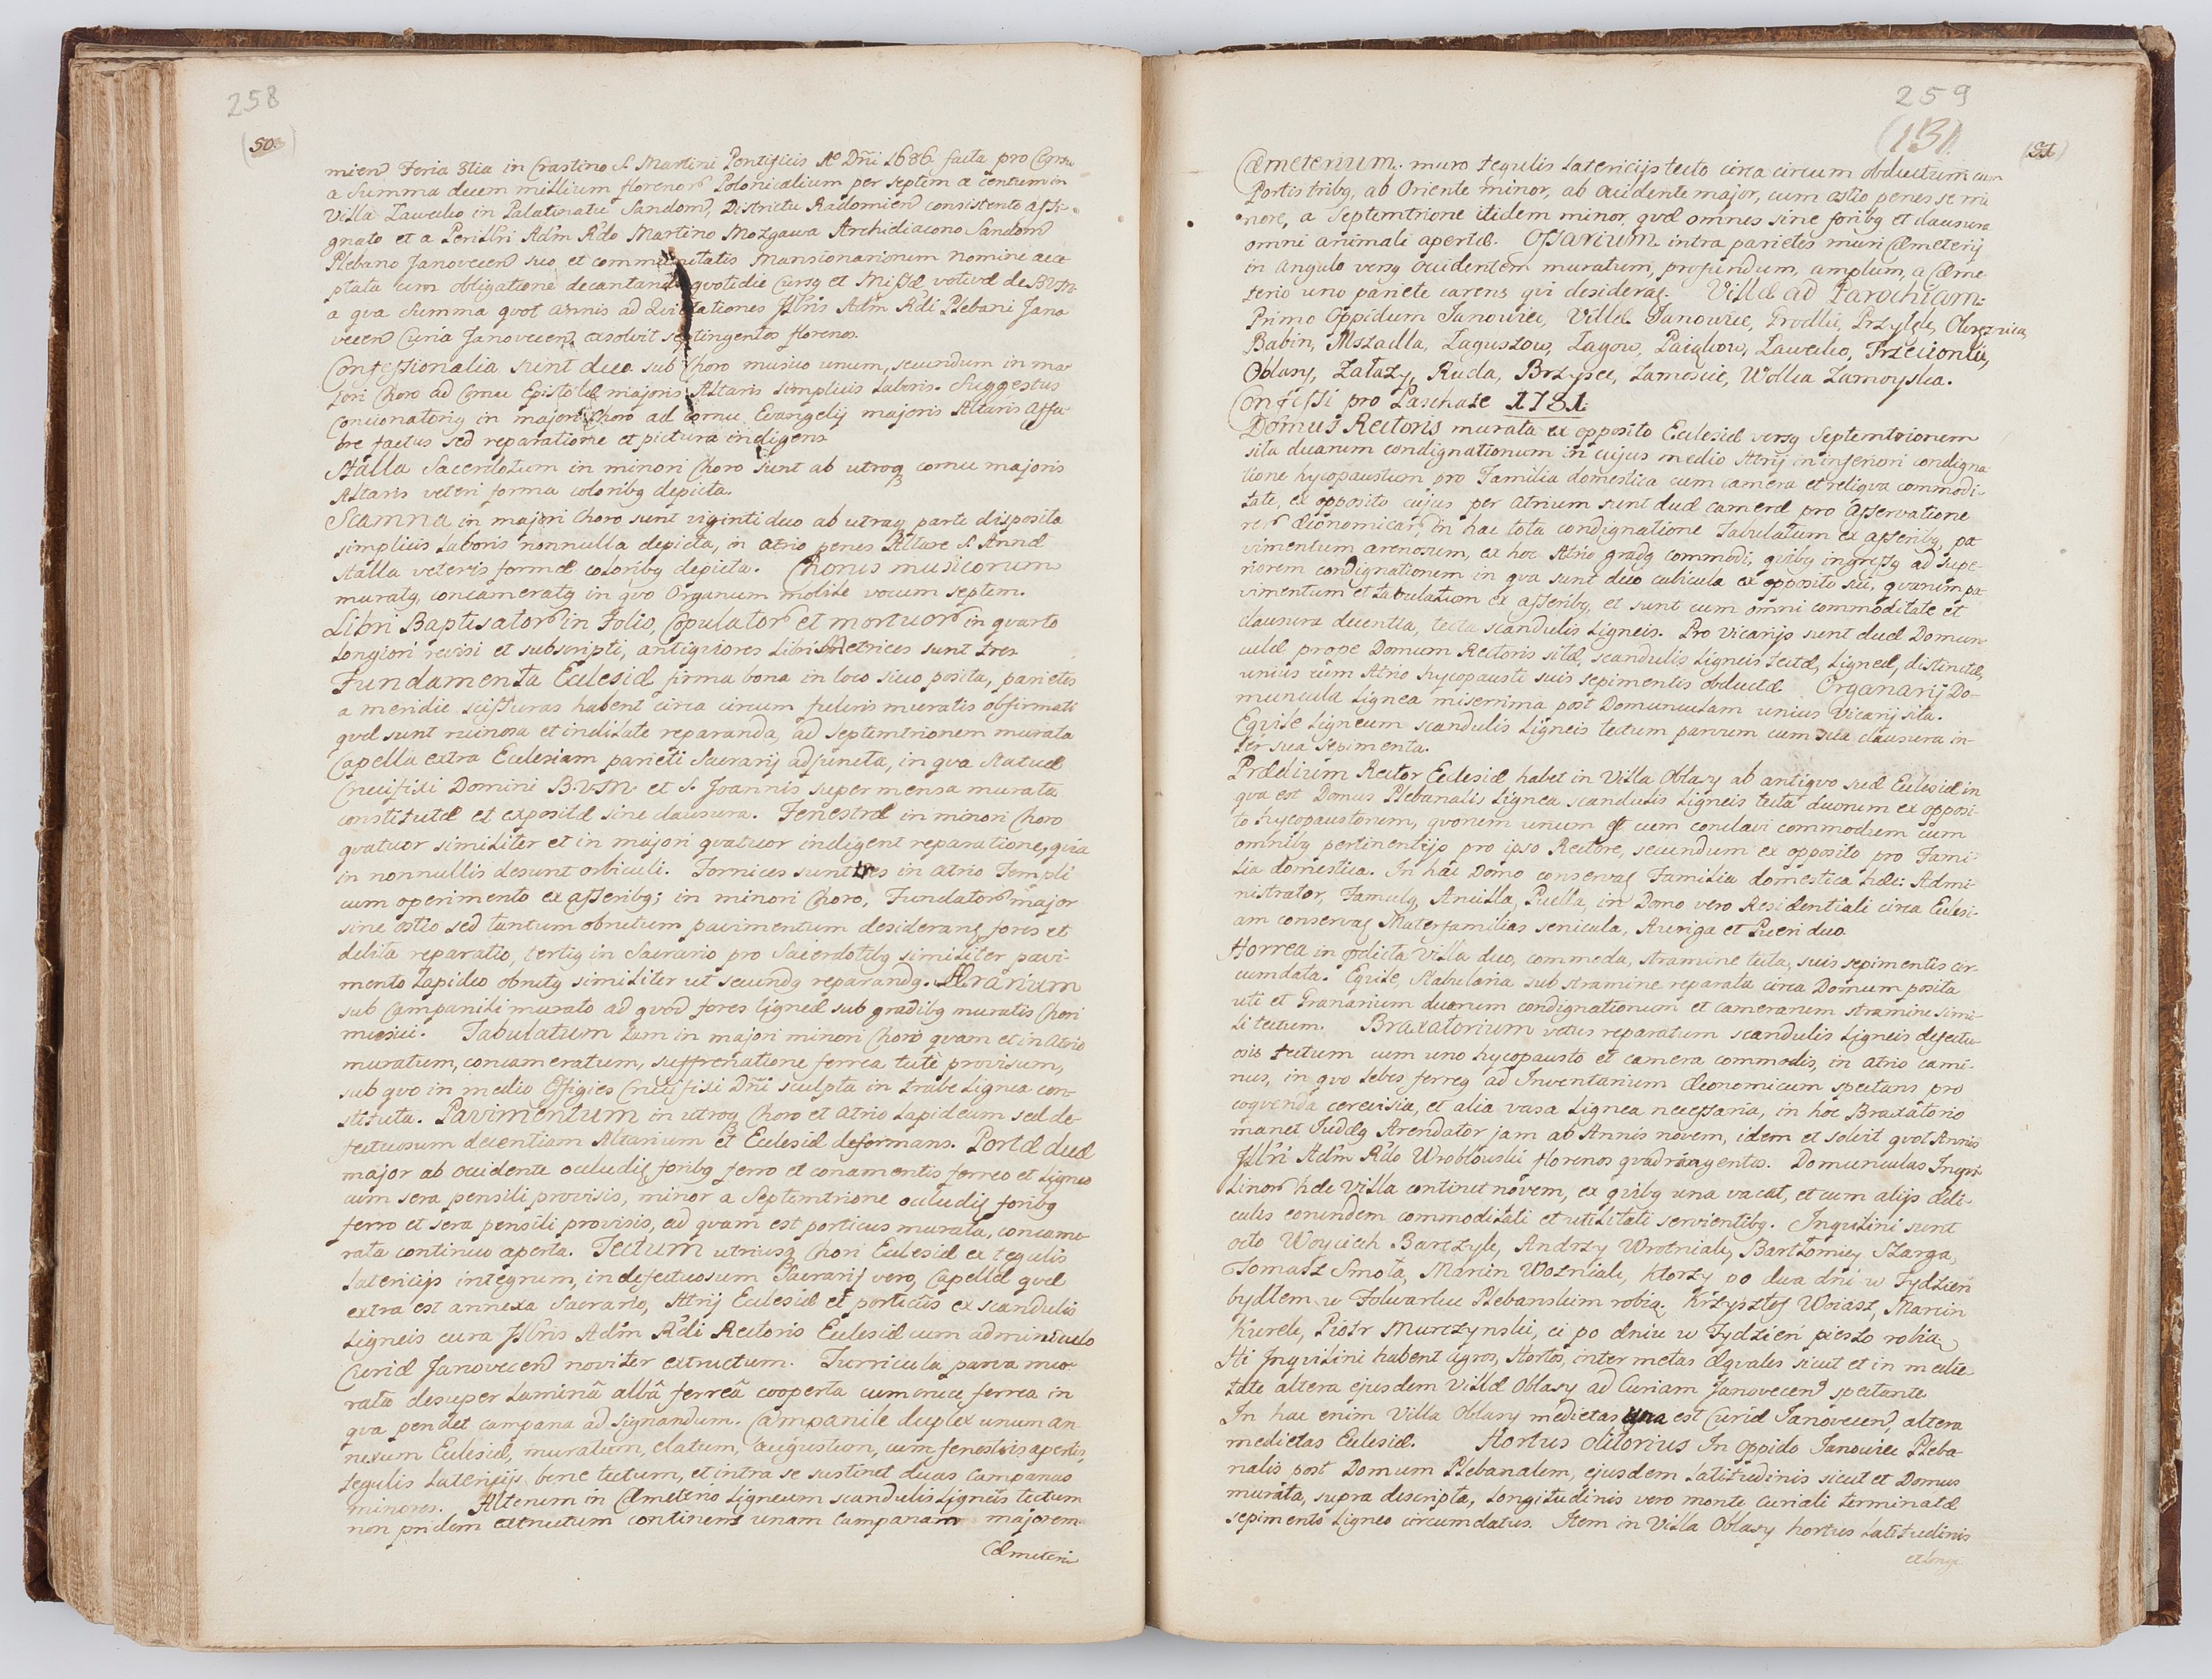 258
(50)
mien Feria 3tia in Crastino S. Martini Pontificis Ao Dni 1686 facta pro Censu
a Summa decem millium florenor Polonicalium per septem a centum in
Villa Ławeczko in Palatinatu Sandom, Districtu Radomien consistente assi-
gnato et a Perillri Adm Rdo Martino Mozgawa Archidiacono Sandom
Plebano Janovecen suo et communitatis Mansionariorum nomine acce
ptata cum obligatione decantandi quotidie Cursq et Missæ votivæ de BVM.
a qva Summa quot annis ad Quietationes Jllris Adm Rdi Plebani Jano
vecen Curia Janovecen exsolvit septingentos florenos.
Confessionalia sunt duo sub Choro musico unum, secundum in ma
jori Choro ad Cornu Epistolæ majoris Altaris simplicis laboris. Suggestus
Concionatoriq in majori Choro ad cornu Evangelij majoris Altaris affa-
bre factus sed reparatione et pictura indigens
Stalla Sacerdotum in minori Choro sunt ab utroq cornu majoris
Altaris veteri forma coloribq depicta.
Scamna in majori Choro sunt viginti duo ab utraq parte disposita
simplicis laboris nonnulla depicta, in atrio penes Altare S. Annæ
stalla veteris formæ coloribq depicta. Chorus musicorum
muratq, concameratq in qvo Organum mobile vocum septem.
Libri Baptisator in Folio, Copulator et mortuor in qvarto
longiori revisi et subscripti, antiqviores Libri Metrices sunt tres
Fundamenta Ecclesiæ firma bona in loco sicco posita, parietes
a meridie scissuras habent circa circum fulcris muratis obfirmati
qvæ sunt ruinosa et indilate reparanda, ad septemtrionem murata
Capella extra Ecclesiam parieti Sacrarij adjuncta, in qva statuæ
Crucifixi Domini B.V.M. et S. Joannis super mensa murata
constitutæ et expositæ sine clausura. Fenestræ in minori Choro
qvatuor similiter et in majori qvatuor indigent reparatione, qvia
in nonnullis desunt orbiculi. Fornices sunt tres in atrio Templi
cum operimento ex asseribq; in minori Choro, Fundator major
sine ostio sed tantum obrutum pavimentum desiderans fores et
debita reparatio, tertiq in Sacrario pro Sacerdotibq similiter pavi-
mento Lapideo obrutq similiter ut secundq reparandq. Ærarium
sub Campanili murato ad qvod fores ligneæ sub gradibq muratis Chori
musici. Tabulatum tam in majori minori Choro qvam et in Atrio
muratum, concameratum, suffrenatione ferrea tute provisum,
sub qvo in medio Effigies Crucifixi Dni sculpta in trabe Lignea con-
stituta. Pavimentum in utroq Choro et Atrio Lapideum sed de-
fectuosum decentiam Altarium et Ecclesiæ deformans. Portæ duæ
major ab occidente occludiq foribq ferro et conamentis ferreo et Ligneo
cum sera pensili provisis, minor a Septemtrione occludiq foribq
ferro et sera pensili provisis, ad qvam est porticus murata, concame-
rata continuo aperta. Tectum utriusq Chori Ecclesiæ ex tegulis
Latericijs integrum, indefectuosum Sacrarij vero, Capellæ qvæ
extra est annexa Sacrario, Atrij Ecclesiæ et porticus ex scandulis
Ligneis cura Jllris Adm Rdi Rectoris Ecclesiæ cum adminiculo
Curiæ Janovecen noviter extructum. Turricula parva mu-
rata desuper laminâ albâ ferreâ cooperta cum cruce ferrea in
qva pendet campana ad signandum. Campanile duplex unum an
nexum Ecclesiæ, muratum, elatum, augustum, cum fenestris apertis,
tegulis Latericijs bene tectum, et intra se sustinet duas Campanas
minores. Alterum in Cœmeterio Ligneum scandulis Ligneis tectum
non pridem extructum continens unam Campanam majorem.
Cœmeteriu
259
(131)
(51)
Cæmeterium. muro tegulis Latericijs tecto circa circum obductum cum
Portis tribq, ab Oriente minor, ab occidente major, cum ostio penes se mi
nore, a Septemtrione itidem minor qvæ omnes sine foribq et clausura
omni animali apertæ. Ossarium intra parietes muri Cæmeterij
in angulo versq occidentem muratum, profundum, amplum, a Cæme
terio uno pariete carens qvi desideraq. Villæ ad Parochiam:
Primo Oppidum Janowiec, Villæ Janowice, Brodki, Przyłęk, Okrężnica,
Babin, Mszadla, Łaguszow, Łagow, Paiąkow, Ławeczko, Trzcionki,
Oblasy, Zatazy, Ruda, Brzysce, Zamoscie, Wolka Zamoyska.
Confessi pro Paschate 1781.
Domus Rectoris murata ex opposito Ecclesiæ versq Septemtrionem
sita duarum condignationum in cujus medio Atrij in inferiori condigna-
tione hypocaustum pro Familia domestica cum camera et reliqva commodi-
tate, ex opposito cujus per Atrium sunt duæ cameræ pro asservatione
rer œconomicar, in hac tota condignatione Tabulatum ex asseribq, pa
vimentum arenosum, ex hoc Atrio gradq commodi, qvibq ingressq ad supe-
riorem condignationem in qva sunt duo cubicula ex opposito sui, qvarum pa
vimentum et tabulatum ex asseribq, et sunt cum omni commoditate et
clausura decentia, tecta scandulis Ligneis. Pro Vicarijs sunt duæ Domun-
culæ prope Domum Rectoris sitæ, scandulis Ligneis tectæ, Ligneæ, distinctæ,
uniis cum Atrio hypocausti suis sepimentis obductæ. Organarij Do-
muncula Lignea miserrima post Domunculam unius Vicarij sita.
Eqvile Ligneum scandulis Ligneis tectum parvum cum sua clausura in-
ter sua sepimenta.
Prædium Rector Ecclesiæ habet in Villa Oblasy ab antiqvo suæ Ecclesiæ in
qva est Domus Plebanalis Lignea scandulis Ligneis tecta duorum ex opposi-
to hypocaustorum, qvorum unum est cum conclavi commodum cum
omnibq pertinentijs pro ipso Rectore, secundum ex opposito pro Fami-
lia domestica. In hac Domo conservaq Familia domestica hæc: Admi-
nistrator, Famulq, Ancilla, Puella, in Domo vero Residentiali circa Ecclesi-
am conservaq Materfamilias senicula, Auriga et Pueri duo.
Horrea in prædicta Villa duo, commoda, stramine tecta, suis sepimentis cir-
cumdata. Eqvile, Stabularia sub stramine reparata circa Domum posita
uti et Granarium duorum condignationum et camerarum stramine simi-
li tectum. Braxatorium vetus reparatum scandulis Ligneis defectu-
osis tectum cum uno hypocausto et camera commodis, in atrio cami-
nus, in qvo lebes ferreq ad Inventarium œconomicum spectans pro
coqvenda cerevisia, et alia vasa Lignea necessaria, in hoc Braxatorio
manet Judæq Arendator jam ab Annis novem, idem et solvit qvot Annis
Jllri Adm Rdo Wroblowski florenos qvadringentos. Domunculas Inqvi-
linor hæc Villa continet novem, ex qvibq una vacat, et cum alijs ædi-
culis eorundem commoditati et utilitati servientibq. Inqvilini sunt
octo Woyciech Barczyk, Andrzy Wrotniak, Bartłomiey Szarga,
Tomasz Smoła, Marcin Wozniak, ktorzy po dwa dni w Tydzień
bydłem w Folwarku Plebanskim robią. Krzysztof Woiasz, Marcin
Kurek, Piotr Murczynski, ci po dniu w Tydzień pieszo robią
Hi Inqvilini habent agros, Hortos, inter metas æqvales sicut et in medie-
tate altera ejusdem Villæ Oblasy ad Curiam Janovecen spectante
In hac enim Villa Oblasy medietas una est Curiæ Janovecen, altera
medietas Ecclesiæ. Hortus olitorius In Oppido Janowiec Pleba
nalis post Domum Plebanalem, ejusdem latitudinis sicut et Domus
murata, supra descripta, longitudinis vero monte Curiali terminatæ
sepimento Ligneo circumdatus. Item in Villa Oblasy hortus latitudinis
et longi